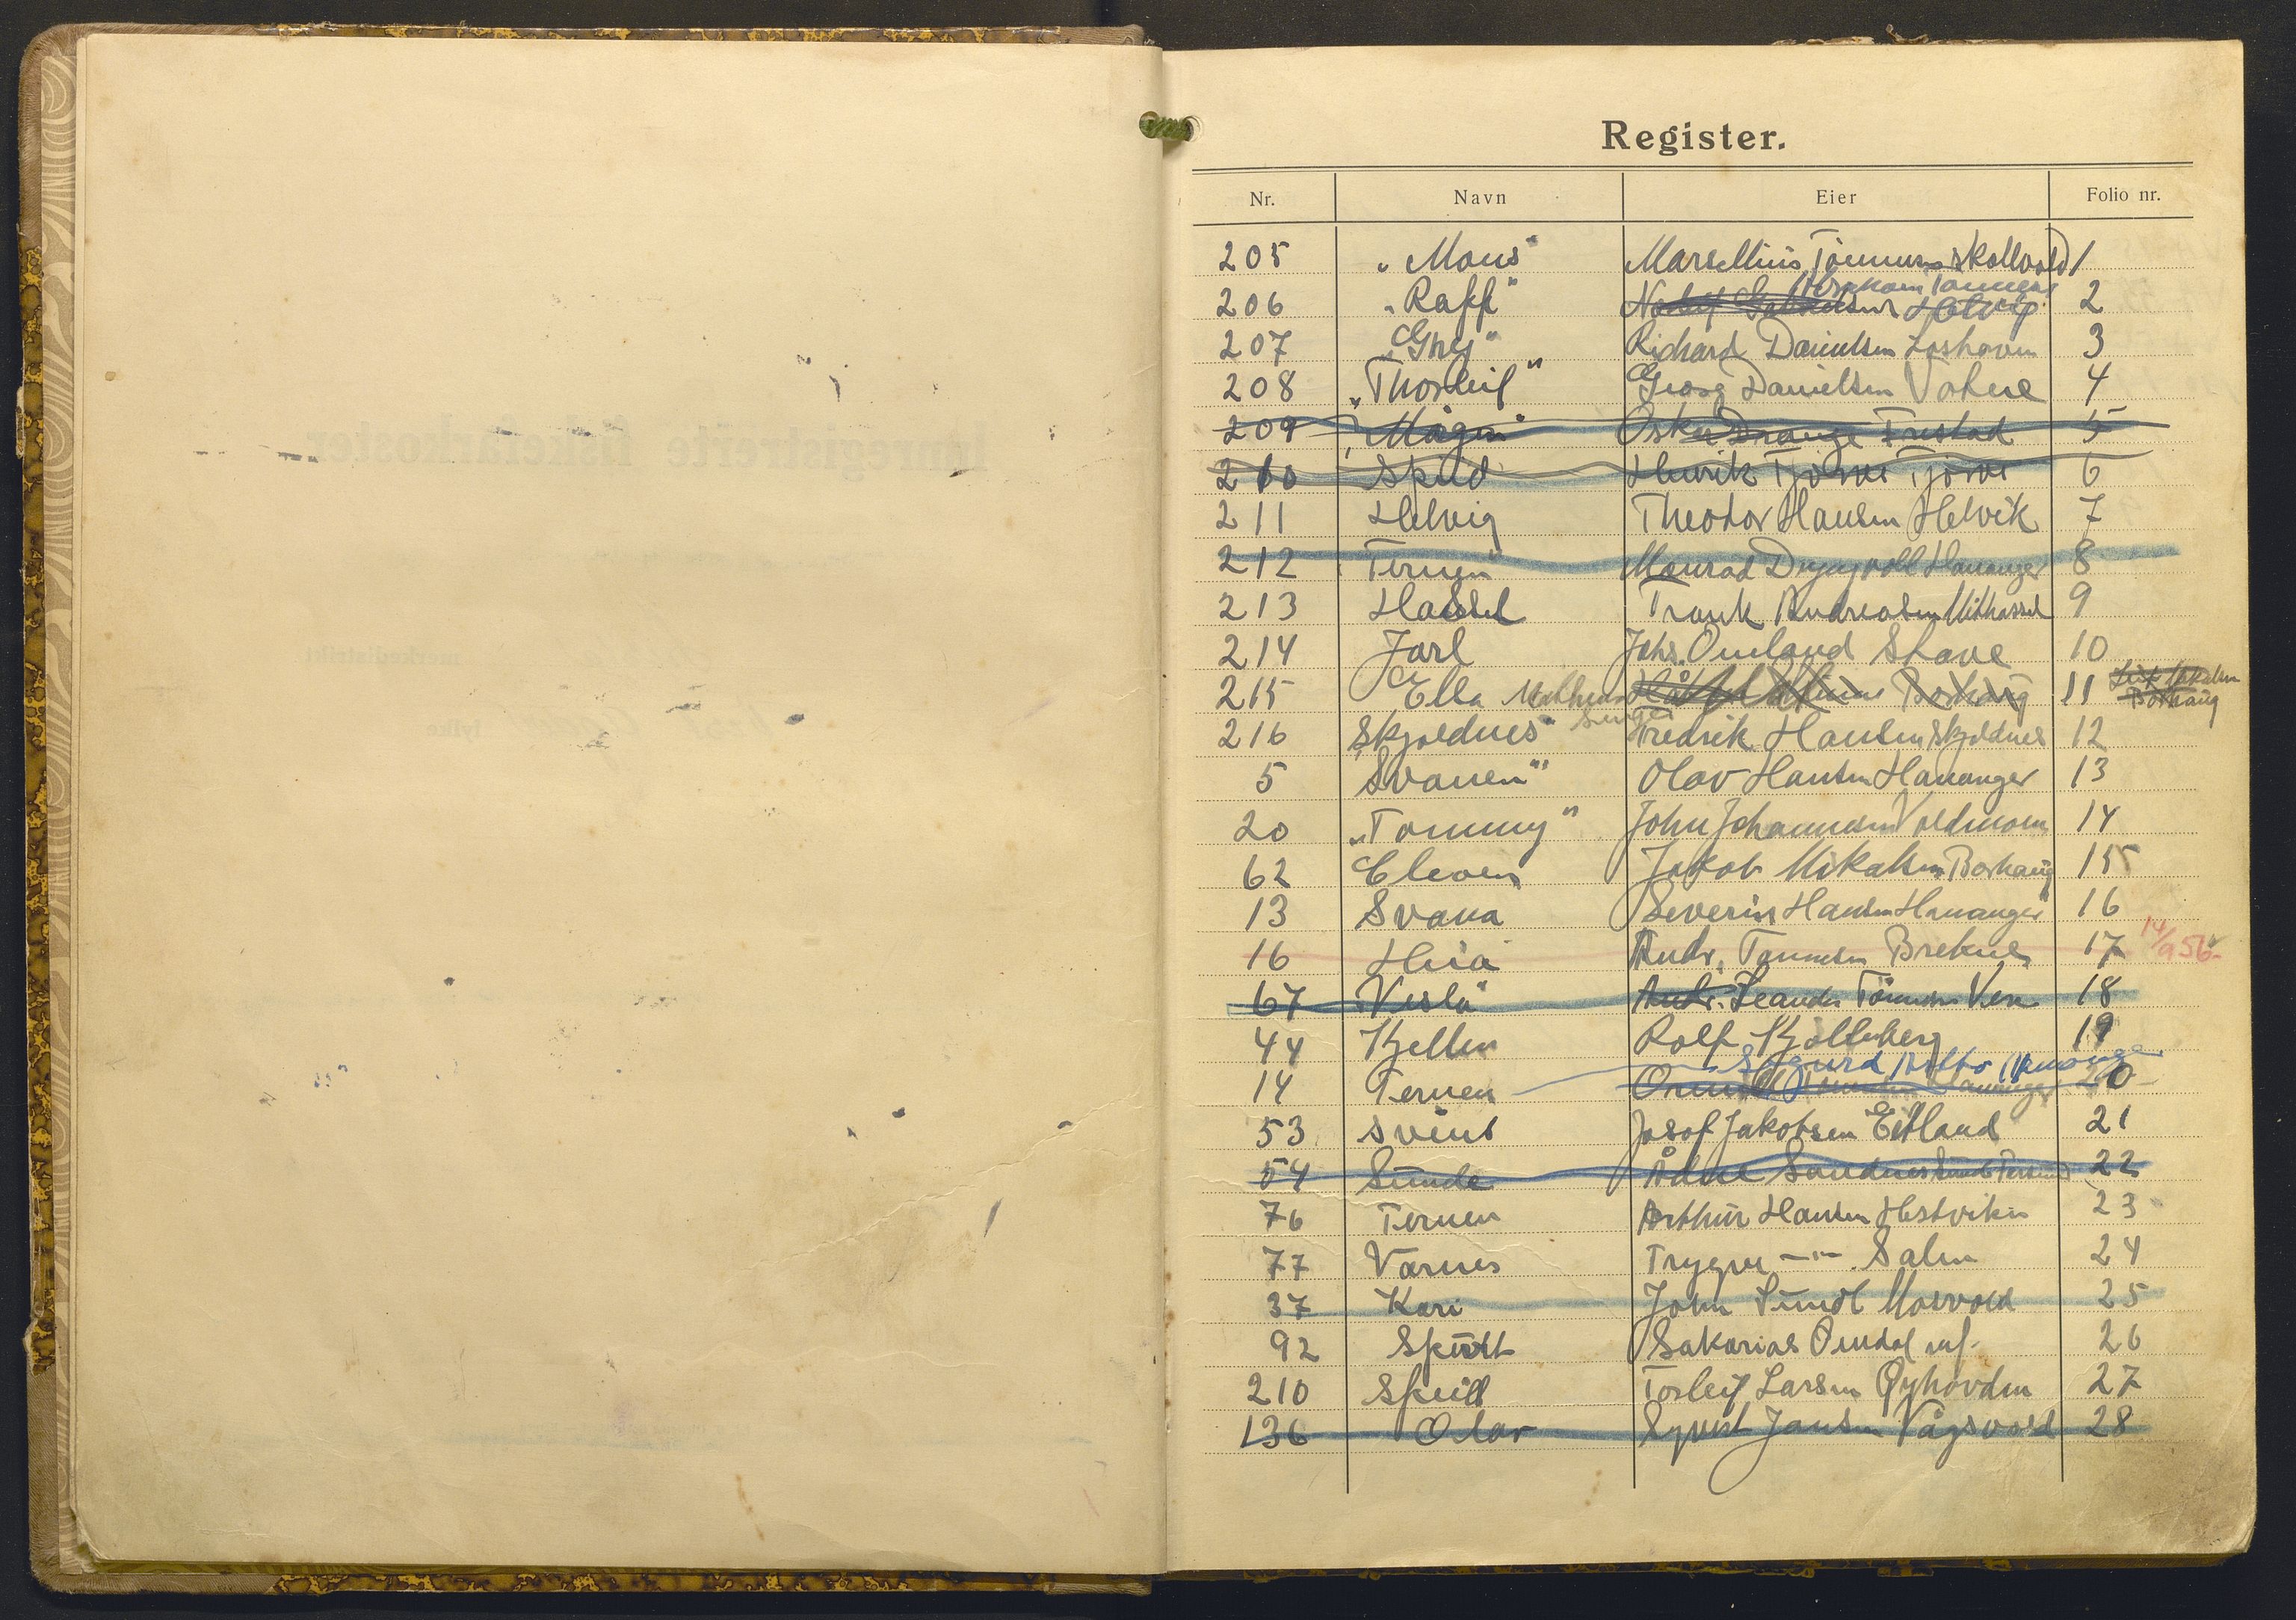 Register.
Nr. Navn Eier Folio nr.
205 „Mons" Marsellius Tönnessen Skollvold 1
206 „Raff" Abraham Tønnesen Helvig 2
207 „Grey" Richard Danielsen Loshavn 3
208 „Thorleif" Georg Danielsen Vatne 4
209 „Mågen" Oskar Drange Frestad 5
210 Spud Henrik Tjörve Tjörve 6
211 Helvig Theodor Hansen Helvik 7
212 Ternen Monrad Dyngvoll Hananger 8
213 Hassel Frank Andreassen Mithassel 9
214 Jarl Johs. Omland Stave 10
215 Ella Borhaug 11
Borhaug
216 Skjoldnes Fredrik Hansen Skjoldnes 12
5 Svanen" Olav Hansen Hananger 13
20 „Tommy" John Johannesen Voldmoen 14
62 Eleven Jakob Mikalsen Borhaug 15
13 Svana Severin Hansen Hananger 16
16 Andr. Tønnesen Brekne 17 14/9 56
67 Vesla" Andr. Leander Tönnessen Ven 18
44 Kjellen Rolf Kjølleberg 19
Sigurd
14 Ternen Hananger 20
53 Svint Josef Jakobsen Eitland 21
54 Sunde Ådne Sandnes 22
76 Ternen Arthur Hansen Hestviken 23
77 Varnes Trygve —"— Salen 24
37 Kari John Sundt Mosvold 25
92 Spurt Sakarias Omdal 26
210 Speill Torleif Larsen Øyhovden 27
136 Olav Syvert Jansen Vågsvold 28